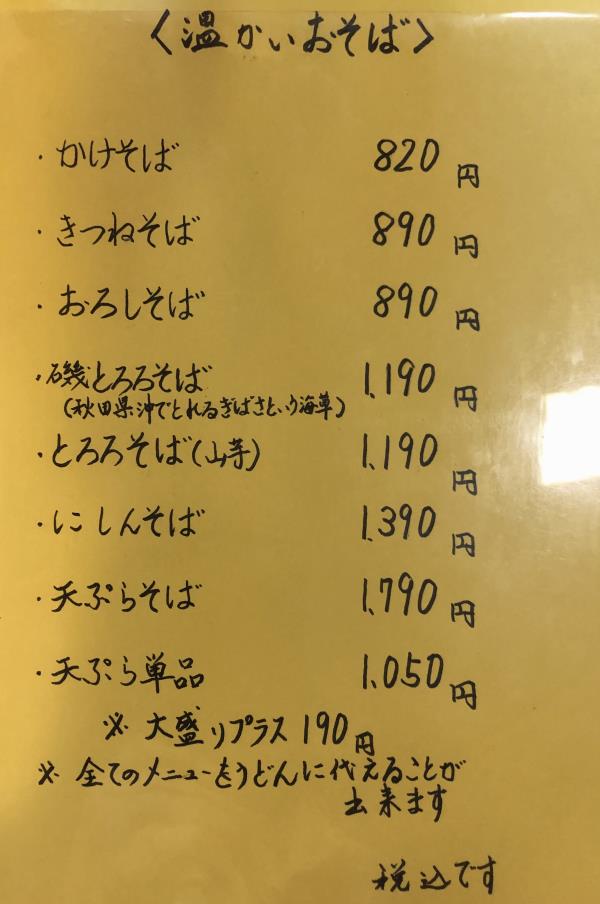 〈温かいおそば〉
・かけそば 820円
・きつねそば 890円
・おろしそば 890円
・磯とろろそば 1,190円
(秋田県沖でとれるぎばさという海草)
・とろろそば(山芋) 1,190円
・にしんそば 1,390円
・天ぷらそば 1,790円
・天ぷら単品 1,050円
※ 大盛りプラス190円
※ 全てのメニューをうどんに代えることが
出来ます
税込です